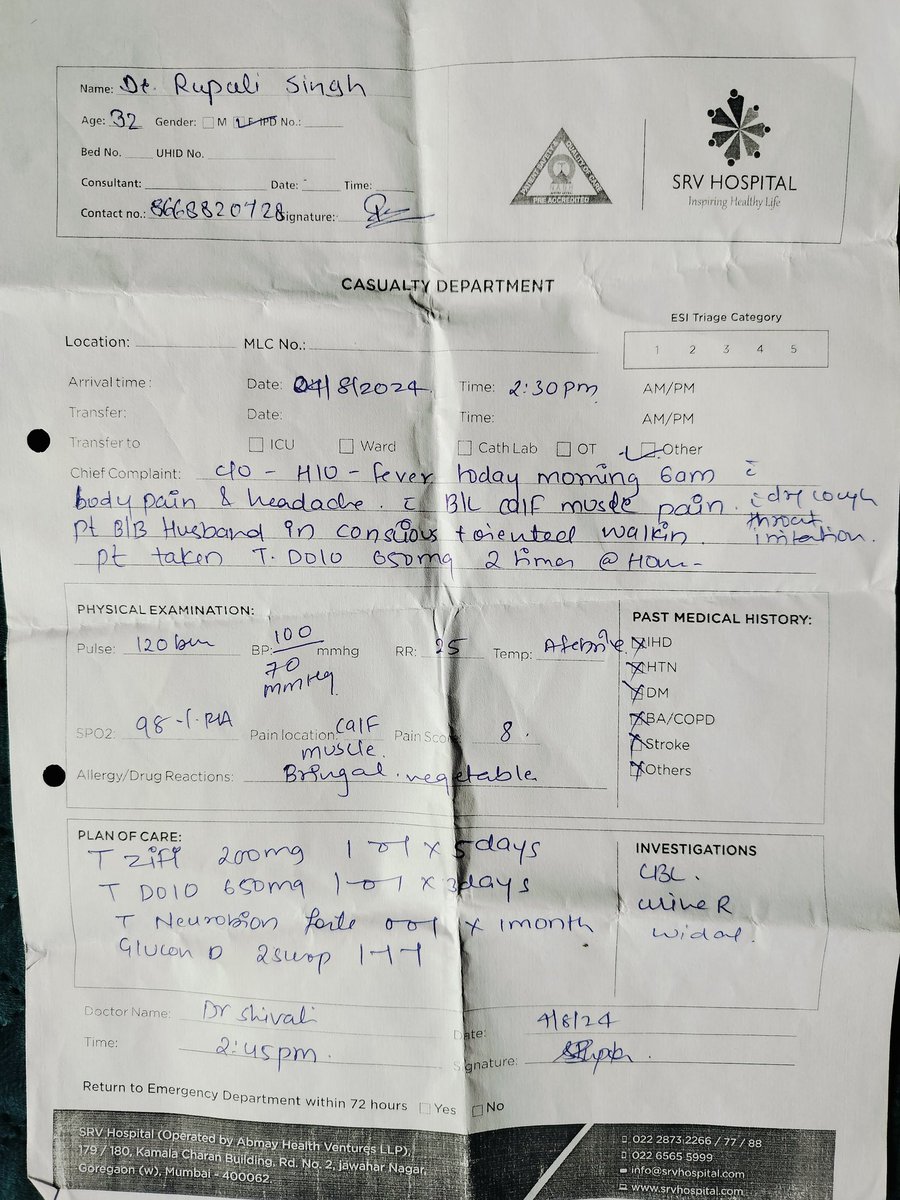 Name: Dr. Rupali Singh
Age: 32 Gender: M F IPD No.:
Bed No. UHID No.
Consultant: Date: Time:
Contact no.: 8668820728 Signature:
PATIENT SAFETY & QUALITY OF CARE
PRE ACCREDITED
SRV HOSPITAL
Inspiring Healthy Life
CASUALTY DEPARTMENT
ESI Triage Category
1 2 3 4 5
Location: MLC No.:
Arrival time: Date: 04/8/2024 Time: 2:30pm AM/PM
Transfer: Date: Time: AM/PM
Transfer to ICU Ward Cath Lab OT Other
Chief Complaint: C/O - H/O - fever today morning 6am c̄
body pain & headache. c̄ B/L calf muscle pain. c̄ dry cough
throat irritation.
pt B/B Husband in conscious & oriented walkin.
pt taken T. DOLO 650mg 2 times @ Home
PHYSICAL EXAMINATION:
Pulse: 120 bm BP: 100/70 mmHg mmhg RR: 25 Temp: Afebrile
SPO2: 98% RA Pain location: Calf muscle. Pain Score 8.
Allergy/Drug Reactions: Bringal vegetable
PAST MEDICAL HISTORY:
IHD
HTN
DM
BA/COPD
Stroke
Others
PLAN OF CARE:
T Zifi 200mg 1-0-1 x 5days
T DOLO 650mg 1-0-1 x 3days
T Neurobion forte 0-0-1 x 1month
Glucon D 2scoop 1-1-1
INVESTIGATIONS
CBC.
Urine R
Widal.
Doctor Name: Dr Shivali Date: 4/8/24
Time: 2:45pm. Signature:
Return to Emergency Department within 72 hours Yes No
SRV Hospital (Operated by Abmay Health Ventures LLP),
179 / 180, Kamala Charan Building, Rd. No. 2, jawahar Nagar,
Goregaon (w), Mumbai - 400062.
022 2873 2266 / 77 / 88
022 6565 5999
info@srvhospital.com
www.srvhospital.com